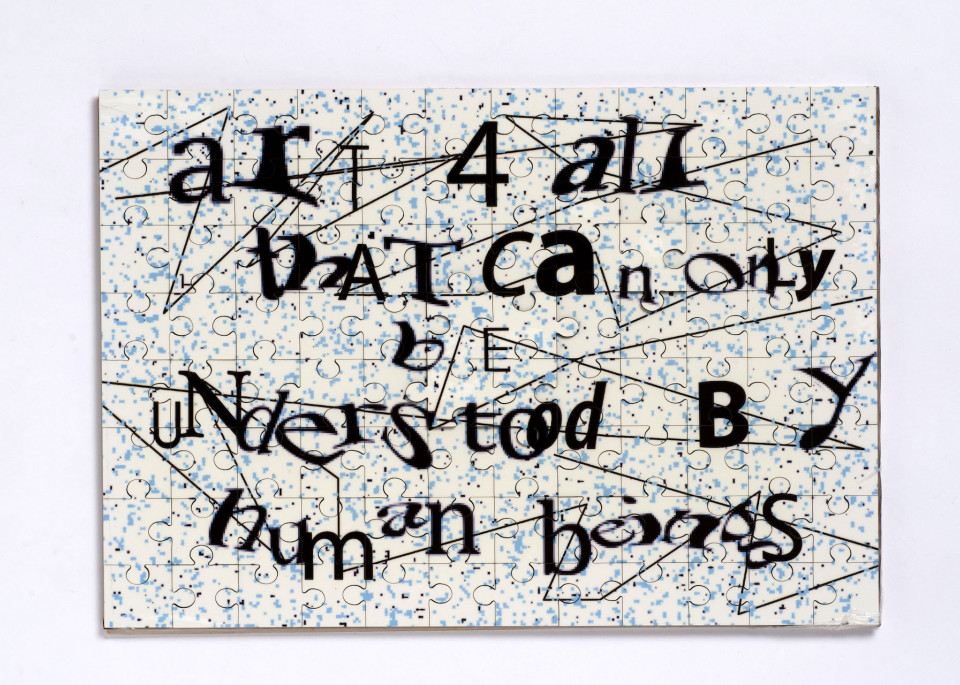 arT 4 all
thAT can onLy
bE
uNderstood By
human beings